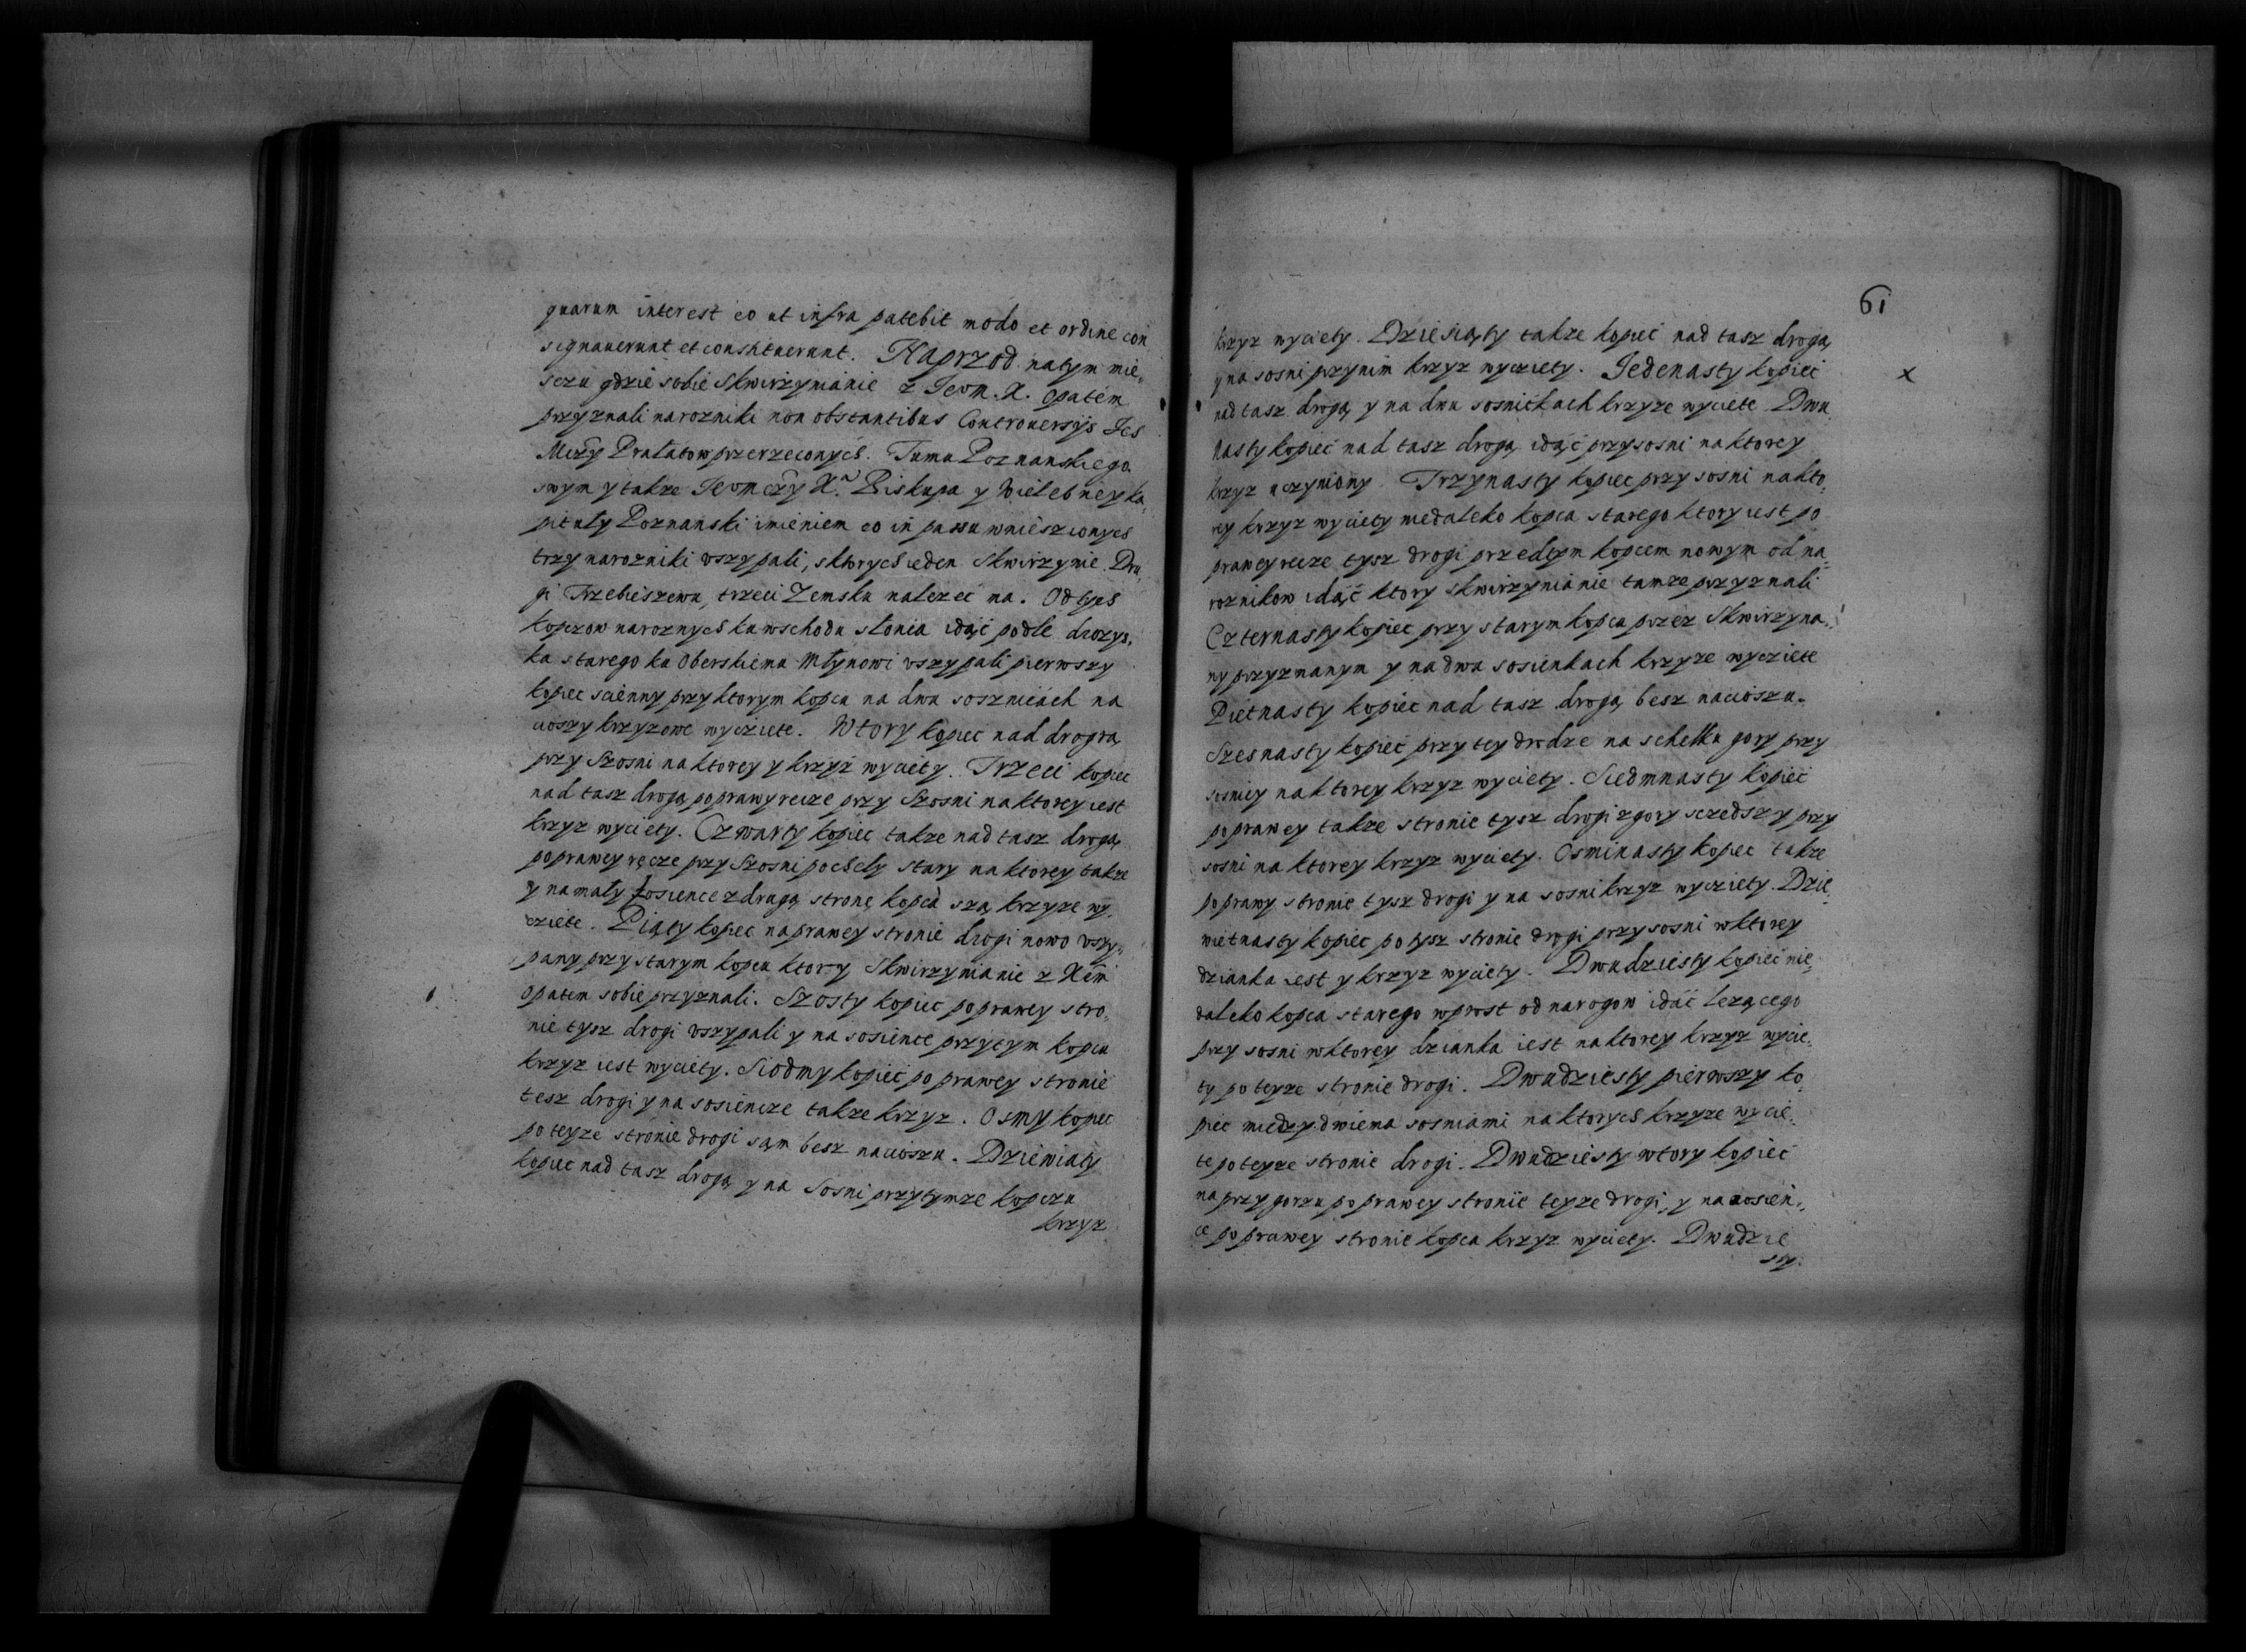 quarum interest eo ut infra patebit modo et ordine con
signauerunt et constituerunt. Naprzod natym mie„
sczu gdzie sobie Skwirzynianie z Jeom. X. Opatem
przyznali narozniki non obstantibus Controuersijs Jch
Mczy Prałatow przerzeconych. Tumu Poznanskiego
swym y takze Jeomczy X. Biskupa y Wielebney ka„
pituły Poznanski imieniem eo in passu wnieszionych
trzy narozniki vszypali, sktorych ieden Skwirzynie. Dru„
gi Trzebieszewu, trzeci Zemsku nalezec na. Od tych
kopczow naroznych ku wschodu słonia idąć podle drozys„
ka starego ku Oberskiemu Młynowi vszypali pierwszy
kopiec scienny przy ktorym kopcu na dwu soszniciach na
cioszy krzyzowe wycziete. Wtory kopiec nad drogrą
przy Szosni na ktorey y krzyż wyciety. Trzeci kopiec
nad tasz drogą po prawy recze przy Szosni na ktorey iest
krzyz wyciety. Czwarty kopiec takze nad tasz drogą
po prawey ręcze przy Szosni pochely stary na ktorey takze
y na mały sosience z drugą stronę kopca szą krzyze wy„
cziete. Piąty kopiec na prawey stronie drogi nowo vszy„
pany przy starym kopcu ktory Skwirzynianie z Xem
Opatem sobie przyznali. Szosty kopiec po prawey stro„
nie tysz drogi vszypali y na sosience przytym kopcu
krzyz iest wyciety. Siodmy kopiec po prawey stronie
tesz drogi y na sosiencze takze krzyz. Osmy kopiec
po teyze stronie drogi sąm besz nacioszu. Dziewiąty
kopiec nad tasz drogą y na Sosni przytymze kopczu
krzyz
61
krzyz wyciety. Dziesiąty takze kopiec nad tasz drogą
y na sosni przynim krzyz wycziety. Jedenasty kopiec
x
nad tasz drogą y na dwu sosnickach krzyze wyciete Dwu„
nasty kopiec nad tasz drogą idąć przy sosni na ktorey
krzyz uczyniony Trzynasty kopiec przy sosni na kto„
rey krzyz wyciety niedaleko kopca starego ktory iest po
prawey recze tysz drogi przedtym kopcem nowym od na„
roznikow idąć ktory Skwirzynianie tamze przyznali
Czternasty kopiec przy starym kopcu przez Skwirzyna„
ny przyznanym y na dwu sosienkach krzyze wycziete
Pietnasty kopiec nad tasz drogą besz nacioszu.
Szesnasty kopiec przy tey drodze na schelku gory przy
sosniey na ktorey krzyz wyciety. Siedmnasty kopiec
po prawey takze stronie tysz drogi z gory sczedszy przy
sosni na ktorey krzyz wyciety. Osminasty kopiec takze
po prawy stronie tysz drogi y na sosni krzyz wycziety. Dzie„
wietnasty kopiec po tysz stronie drogi przy sosni w ktorey
dzianka iest y krzyz wyciety. Dwudziesty kopiec nie„
daleko kopca starego wprost od narogow idąć lezącego
przy sosni w ktorey dzianka iest na ktorey krzyz wycie„
ty po teyze stronie drogi. Dwudziesty pierwszy ko„
piec miedzy dwiema sosniami na ktorych krzyze wycie„
te po teyze stronie drogi. Dwudziesty wtory kopiec
na przygorzu po prawey stronie teyze drogi, y na sosien„
ce po prawey stronie kopca krzyz wyciety. Dwudzie
sty